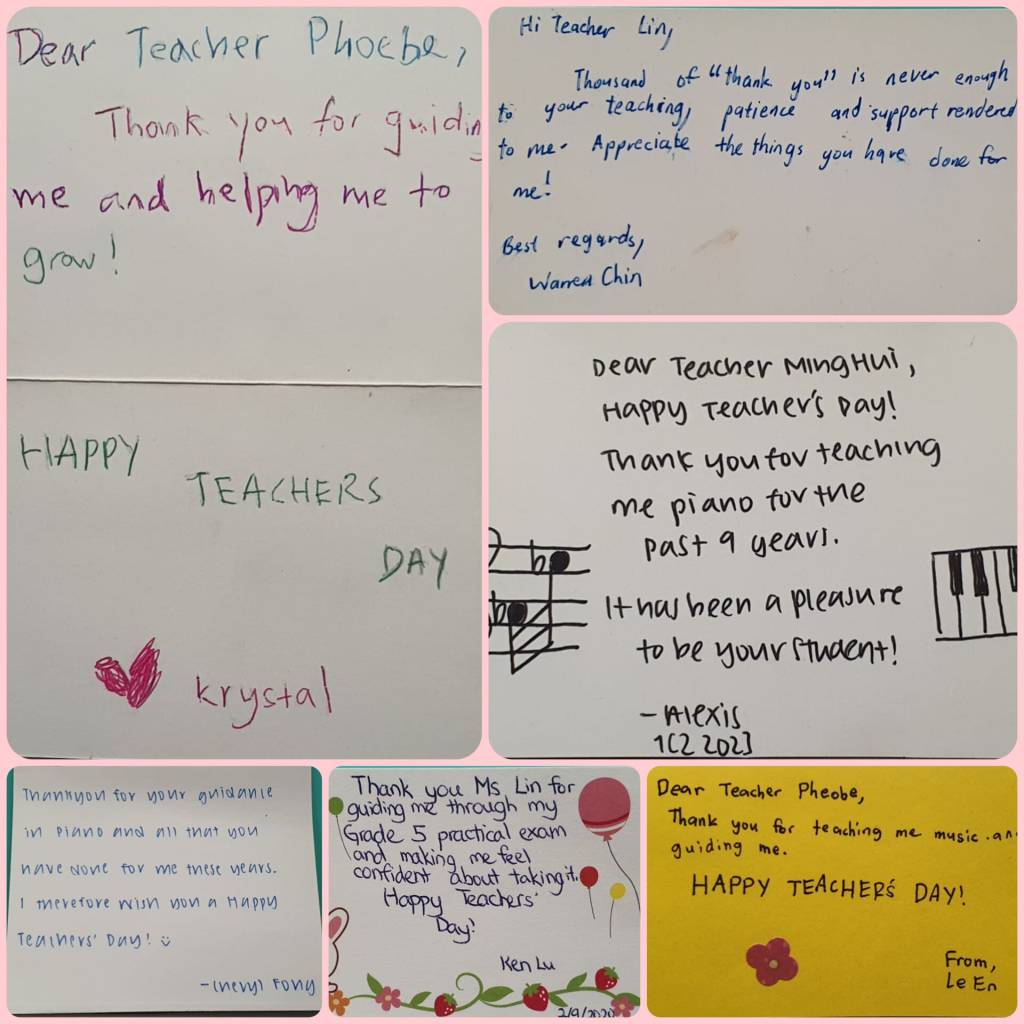 Dear Teacher Phoebe,
Thank you for guidin
me and helping me to
grow!
HAPPY
TEACHERS
DAY
krystal
Hi Teacher Lin,
Thousand of "thank you" is never enough
to your teaching, patience and support rendered
to me. Appreciate the things you have done for
me!
Best regards,
Warren Chin
Dear Teacher MingHui,
Happy Teacher's Day!
Thank you for teaching
me piano for the
past 9 years.
It has been a pleasure
to be your student!
- Alexis
1C2 2023
Thankyou for your guidance
in piano and all that you
have done for me these years.
I therefore wish you a Happy
Teachers' Day! :)
- Cheryl Fong
Thank you Ms Lin for
guiding me through my
Grade 5 practical exam
and making me feel
confident about taking it.
Happy Teachers'
Day!
Ken Lu
2/9/2020
Dear Teacher Pheobe,
Thank you for teaching me music an
guiding me.
HAPPY TEACHER'S DAY!
From,
Le En